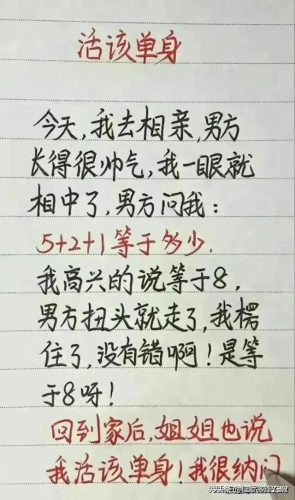 活该单身
今天,我去相亲,男方
长得很帅气,我一眼就
相中了,男方问我:
5+2+1等于多少.
我高兴的说等于8,
男方扭头就走了,我楞
住了,没有错啊!是等
于8呀!
回到家后,姐姐也说
我活该单身!我很纳闷